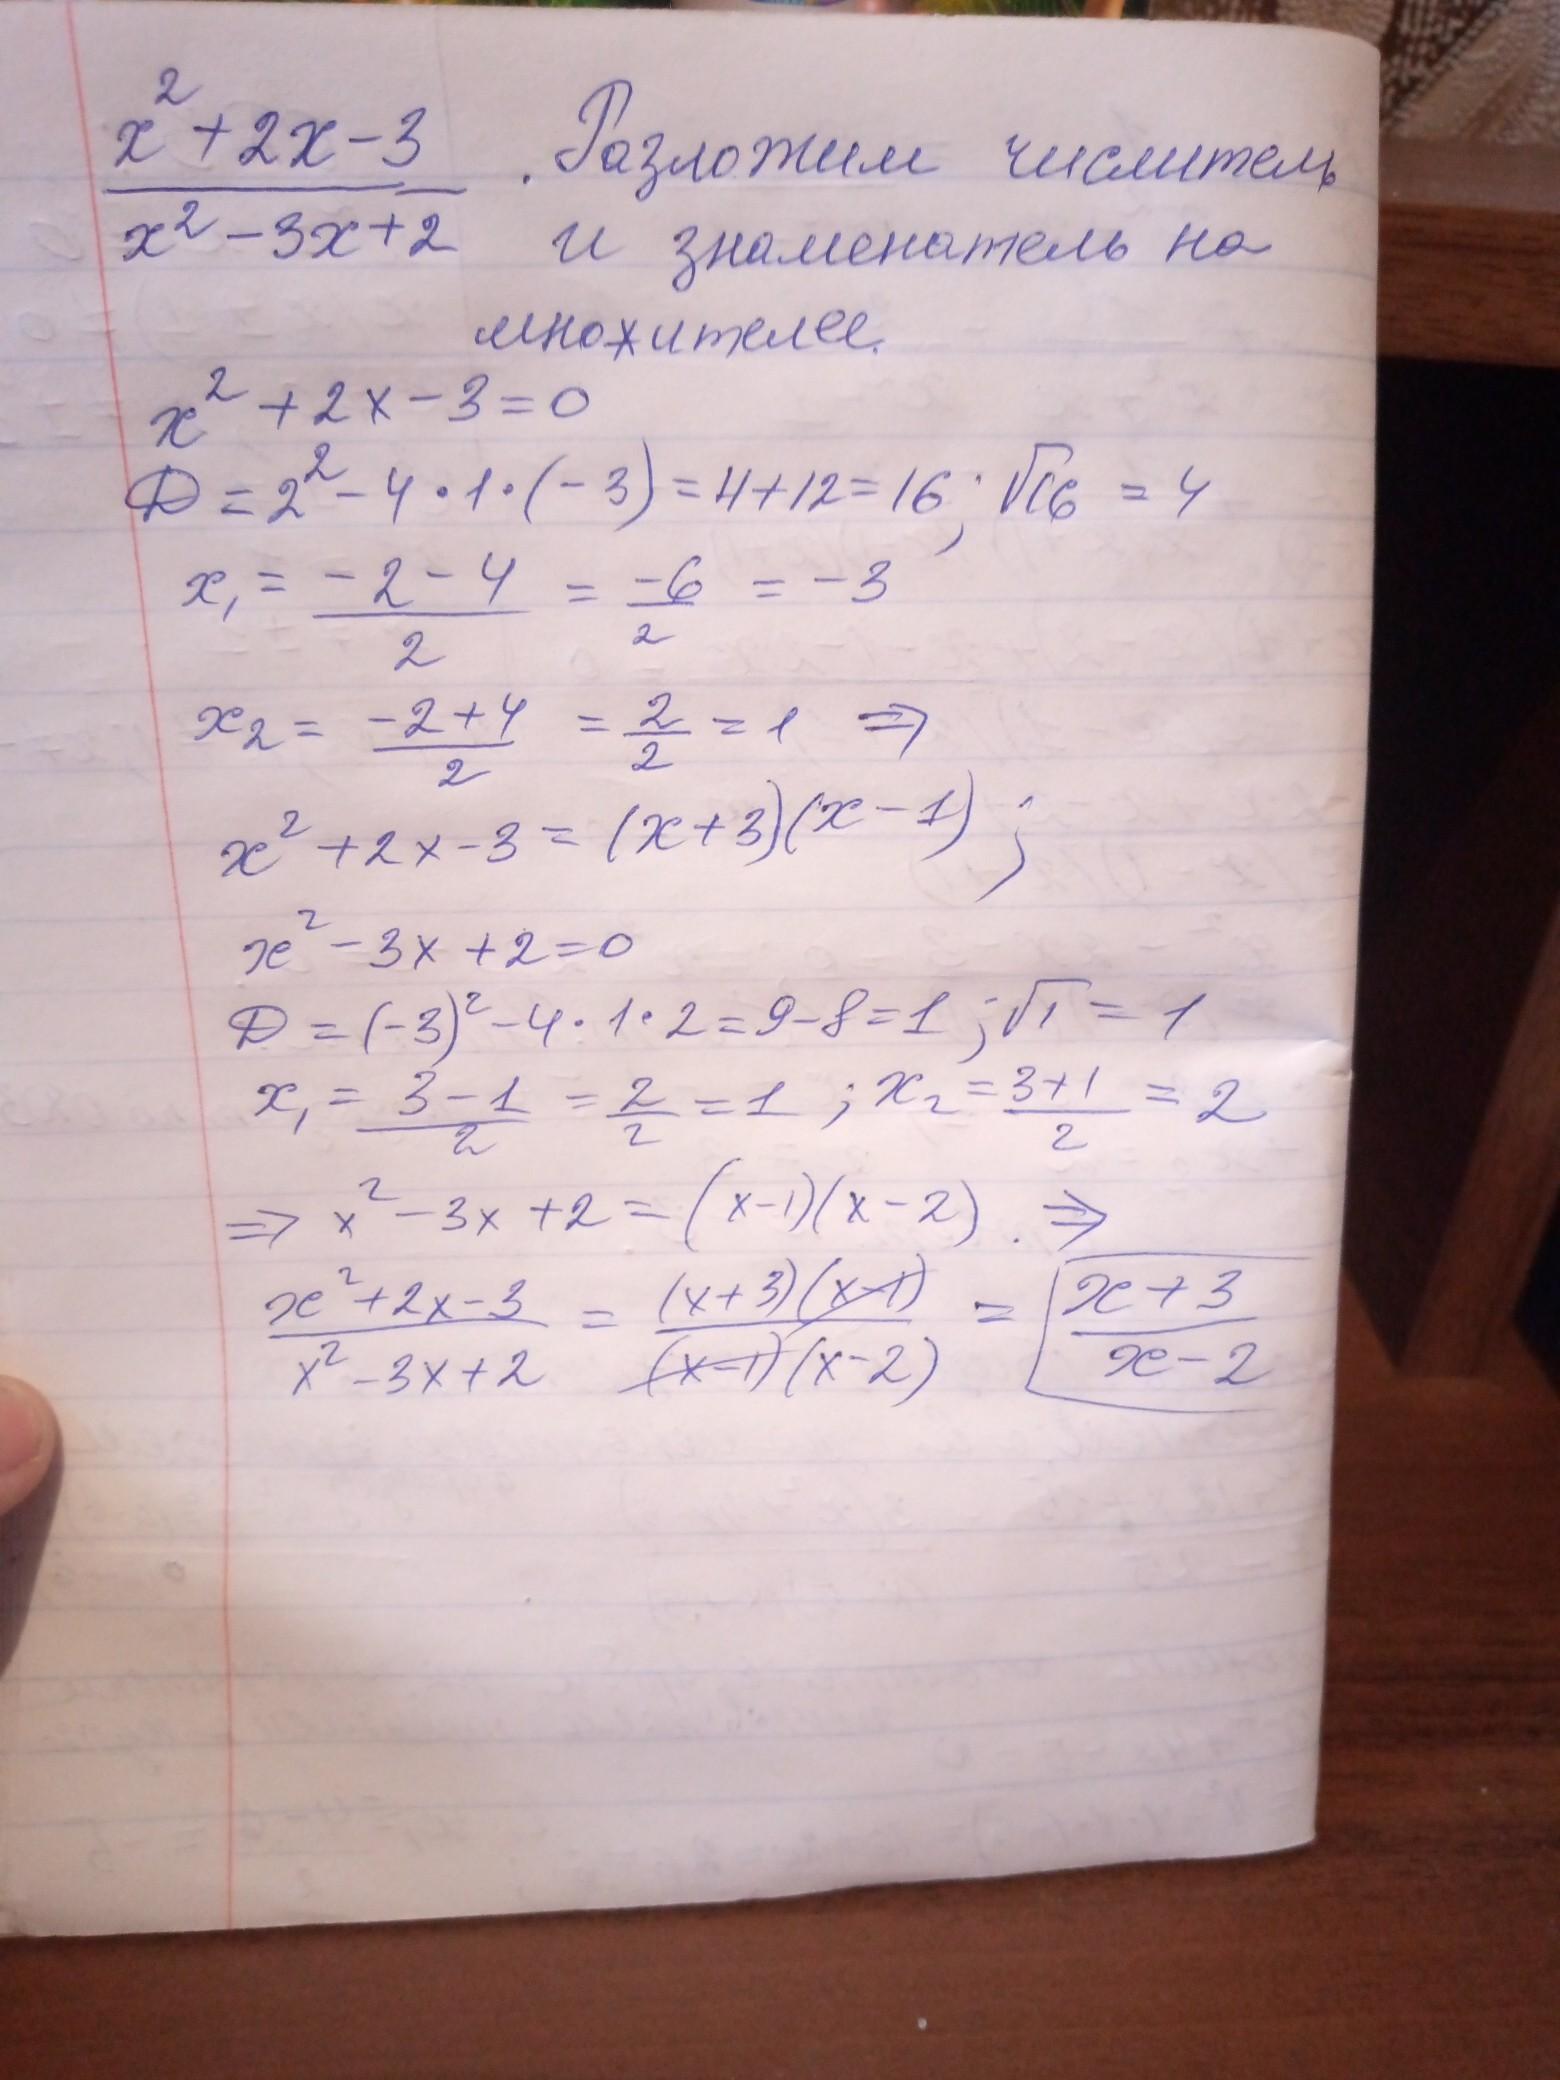 x² + 2x - 3 / x² - 3x + 2 . Разложим числитель
и знаменатель на
множители.
x² + 2x - 3 = 0
D = 2² - 4 · 1 · (-3) = 4 + 12 = 16 ; √16 = 4
x₁ = (-2 - 4)/2 = -6/2 = -3
x₂ = (-2 + 4)/2 = 2/2 = 1 ⇒
x² + 2x - 3 = (x + 3)(x - 1) ;
x² - 3x + 2 = 0
D = (-3)² - 4 · 1 · 2 = 9 - 8 = 1 ; √1 = 1
x₁ = (3 - 1)/2 = 2/2 = 1 ; x₂ = (3 + 1)/2 = 2
⇒ x² - 3x + 2 = (x - 1)(x - 2) . ⇒
(x² + 2x - 3)/(x² - 3x + 2) = (x + 3)(x - 1)/(x - 1)(x - 2) = (x + 3)/(x - 2)